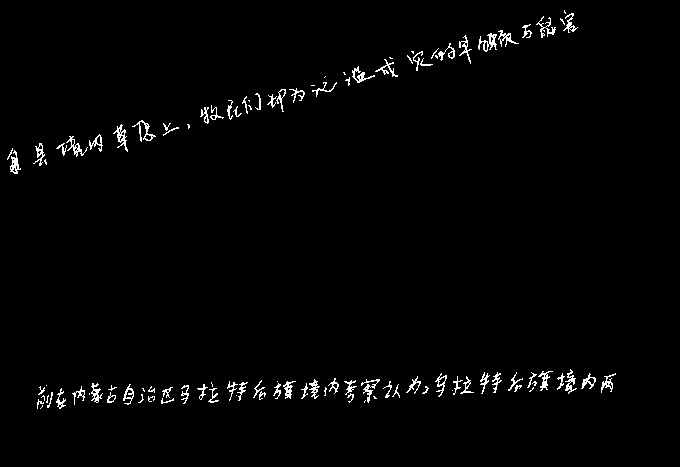 县境内草原上，牧民们却为之造成灾的旱颇与鼠害
前在内蒙古自治区乌拉特后旗境内考察认为，乌拉特后旗境内两